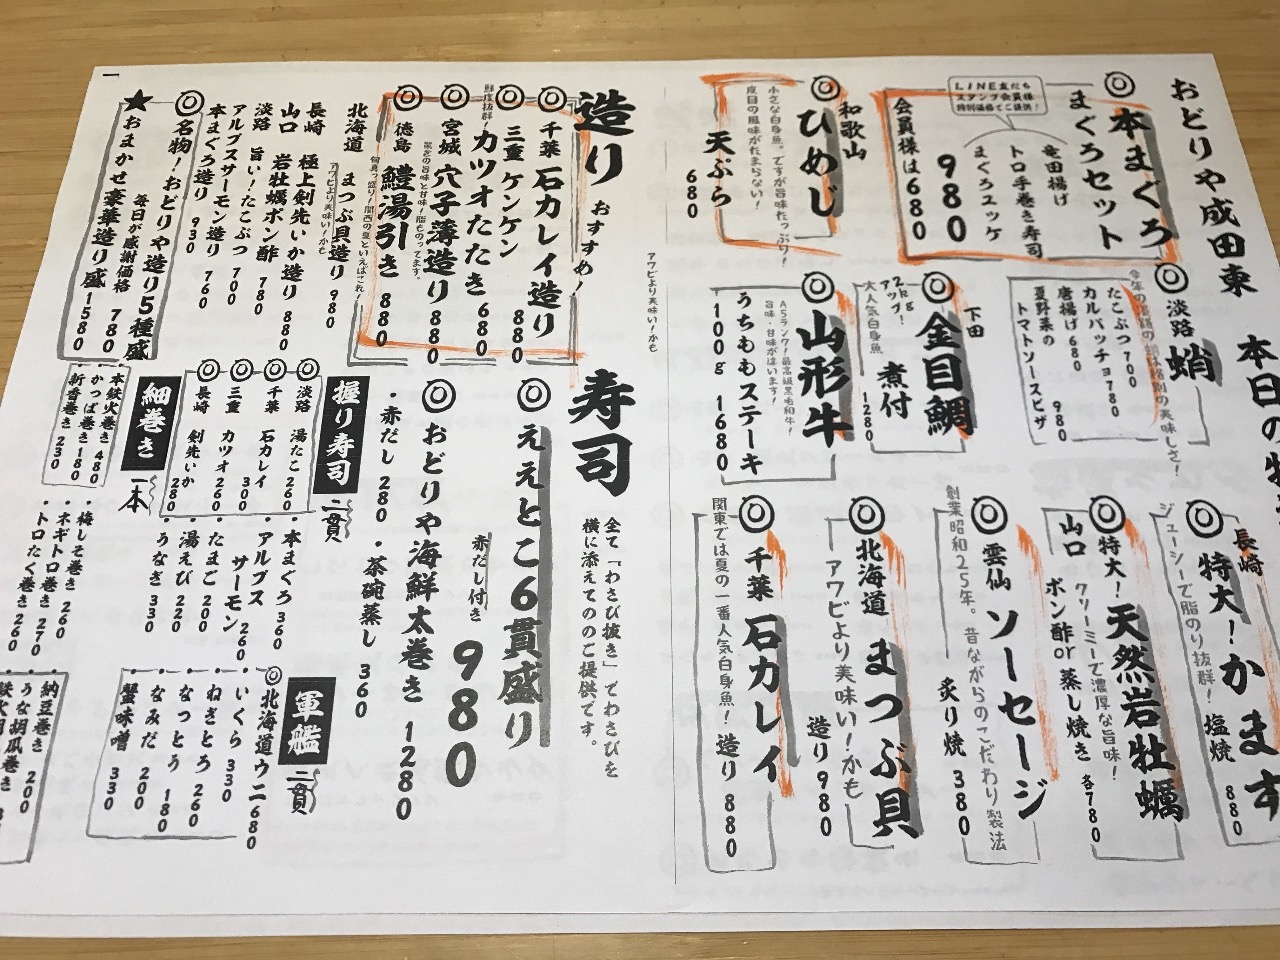 おどりや成田東
本日の
◎本まぐろ
まぐろセット
LINE友だち
スタンプ会員様
特別価格でご提供!
竜田揚げ
トロ手巻き寿司
まぐろユッケ
980
会員様は680
◎ひめじ
和歌山
小さな白身魚。ですが旨味たっぷり!
皮目の風味がたまらない!
天ぷら
680
◎淡路 蛸
たこぶつ 700
カルパッチョ 780
唐揚げ 680
夏野菜の
トマトソースピザ 980
◎金目鯛
下田
2kgアップ!
大人気白身魚
煮付 1280
◎山形牛
A5ランク!最高級黒毛和牛!
旨味・甘味が違います!
うちももステーキ
100g 1680
アワビより美味い!かも
◎特大!かます
長崎
ジューシーで脂のり抜群!
塩焼 880
◎特大!天然岩牡蠣
山口
クリーミーで濃厚な旨味!
ポン酢or蒸し焼き 各780
◎雲仙 ソーセージ
創業昭和25年。昔ながらのこだわり製法
炙り焼 380
◎北海道 まつぶ貝
アワビより美味い!かも
造り 980
◎千葉 石カレイ
関東では夏の一番人気白身魚!
造り 880
造り おすすめ!
◎千葉 石カレイ造り 880
◎三重 ケンケン
カツオたたき 680
鮮度抜群!
◎宮城 穴子薄造り 880
驚きの旨味と甘味!脂ものってます。
◎徳島 鱧湯引き 880
旬真っ盛り!関西の夏といえばこれ!
北海道 まつぶ貝造り 980
アワビより美味い!かも
長崎 極上剣先いか造り 880
山口 岩牡蠣ポン酢 780
淡路 旨い!たこぶつ 700
アルプスサーモン造り 760
本まぐろ造り 930
◎名物!おどりや造り5種盛
毎日が感謝価格 780
★おまかせ豪華造り盛 1580
寿司
全て「わさび抜き」でわさびを
横に添えてのご提供です。
◎ええとこ6貫盛り
赤だし付き 980
◎おどりや海鮮太巻き 1280
・赤だし 280 ・茶碗蒸し 360
握り寿司 二貫
◎淡路 湯たこ 260
◎千葉 石カレイ 300
◎三重 カツオ 260
◎長崎 剣先いか 280
・本まぐろ 360
・アルプス
サーモン 260
・たまご 200
・湯えび 220
・うなぎ 330
軍艦 二貫
◎北海道ウニ 680
・いくら 330
・ねぎとろ 260
・なっとう 180
・なみだ 200
・蟹味噌 330
細巻き 一本
・本鉄火巻き 480
・かっぱ巻き 180
・新香巻き 230
・梅しそ巻き 260
・ネギトロ巻き 270
・トロたく巻き 260
・納豆巻き 200
・うな胡瓜巻き